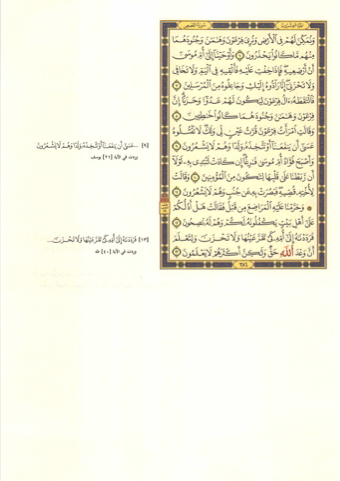 سورة القصص
الجزء العشرون
وَنُمَكِّنَ لَهُمْ فِي ٱلْأَرْضِ وَنُرِيَ فِرْعَوْنَ وَهَٰمَٰنَ وَجُنُودَهُمَا
مِنْهُم مَّا كَانُوا۟ يَحْذَرُونَ ٦ وَأَوْحَيْنَآ إِلَىٰٓ أُمِّ مُوسَىٰٓ
أَنْ أَرْضِعِيهِ فَإِذَا خِفْتِ عَلَيْهِ فَأَلْقِيهِ فِي ٱلْيَمِّ وَلَا تَخَافِي
وَلَا تَحْزَنِيٓ إِنَّا رَآدُّوهُ إِلَيْكِ وَجَاعِلُوهُ مِنَ ٱلْمُرْسَلِينَ ٧
فَٱلْتَقَطَهُۥٓ ءَالُ فِرْعَوْنَ لِيَكُونَ لَهُمْ عَدُوًّا وَحَزَنًا إِنَّ
فِرْعَوْنَ وَهَٰمَٰنَ وَجُنُودَهُمَا كَانُوا۟ خَٰطِـِٔينَ ٨
وَقَالَتِ ٱمْرَأَتُ فِرْعَوْنَ قُرَّتُ عَيْنٍ لِّي وَلَكَ لَا تَقْتُلُوهُ
عَسَىٰٓ أَن يَنفَعَنَآ أَوْ نَتَّخِذَهُۥ وَلَدًا وَهُمْ لَا يَشْعُرُونَ ٩
وَأَصْبَحَ فُؤَادُ أُمِّ مُوسَىٰ فَٰرِغًا إِن كَادَتْ لَتُبْدِي بِهِۦ لَوْلَآ
أَن رَّبَطْنَا عَلَىٰ قَلْبِهَا لِتَكُونَ مِنَ ٱلْمُؤْمِنِينَ ١٠ وَقَالَتْ
لِأُخْتِهِۦ قُصِّيهِ فَبَصُرَتْ بِهِۦ عَن جُنُبٍ وَهُمْ لَا يَشْعُرُونَ ١١
۞ وَحَرَّمْنَا عَلَيْهِ ٱلْمَرَاضِعَ مِن قَبْلُ فَقَالَتْ هَلْ أَدُلُّكُمْ
عَلَىٰٓ أَهْلِ بَيْتٍ يَكْفُلُونَهُۥ لَكُمْ وَهُمْ لَهُۥ نَٰصِحُونَ ١٢
فَرَدَدْنَٰهُ إِلَىٰٓ أُمِّهِۦ كَيْ تَقَرَّ عَيْنُهَا وَلَا تَحْزَنَ وَلِتَعْلَمَ
أَنَّ وَعْدَ ٱللَّهِ حَقٌّ وَلَٰكِنَّ أَكْثَرَهُمْ لَا يَعْلَمُونَ ١٣
٣٨٦
[٩] ...عَسَىٰٓ أَن يَنفَعَنَآ أَوْ نَتَّخِذَهُۥ وَلَدًا وَهُمْ لَا يَشْعُرُونَ
وردت في الآية [٢١] يوسف
[١٣] فَرَدَدْنَٰهُ إِلَىٰٓ أُمِّهِۦ كَيْ تَقَرَّ عَيْنُهَا وَلَا تَحْزَنَ...
وردت في الآية [٤٠] طه